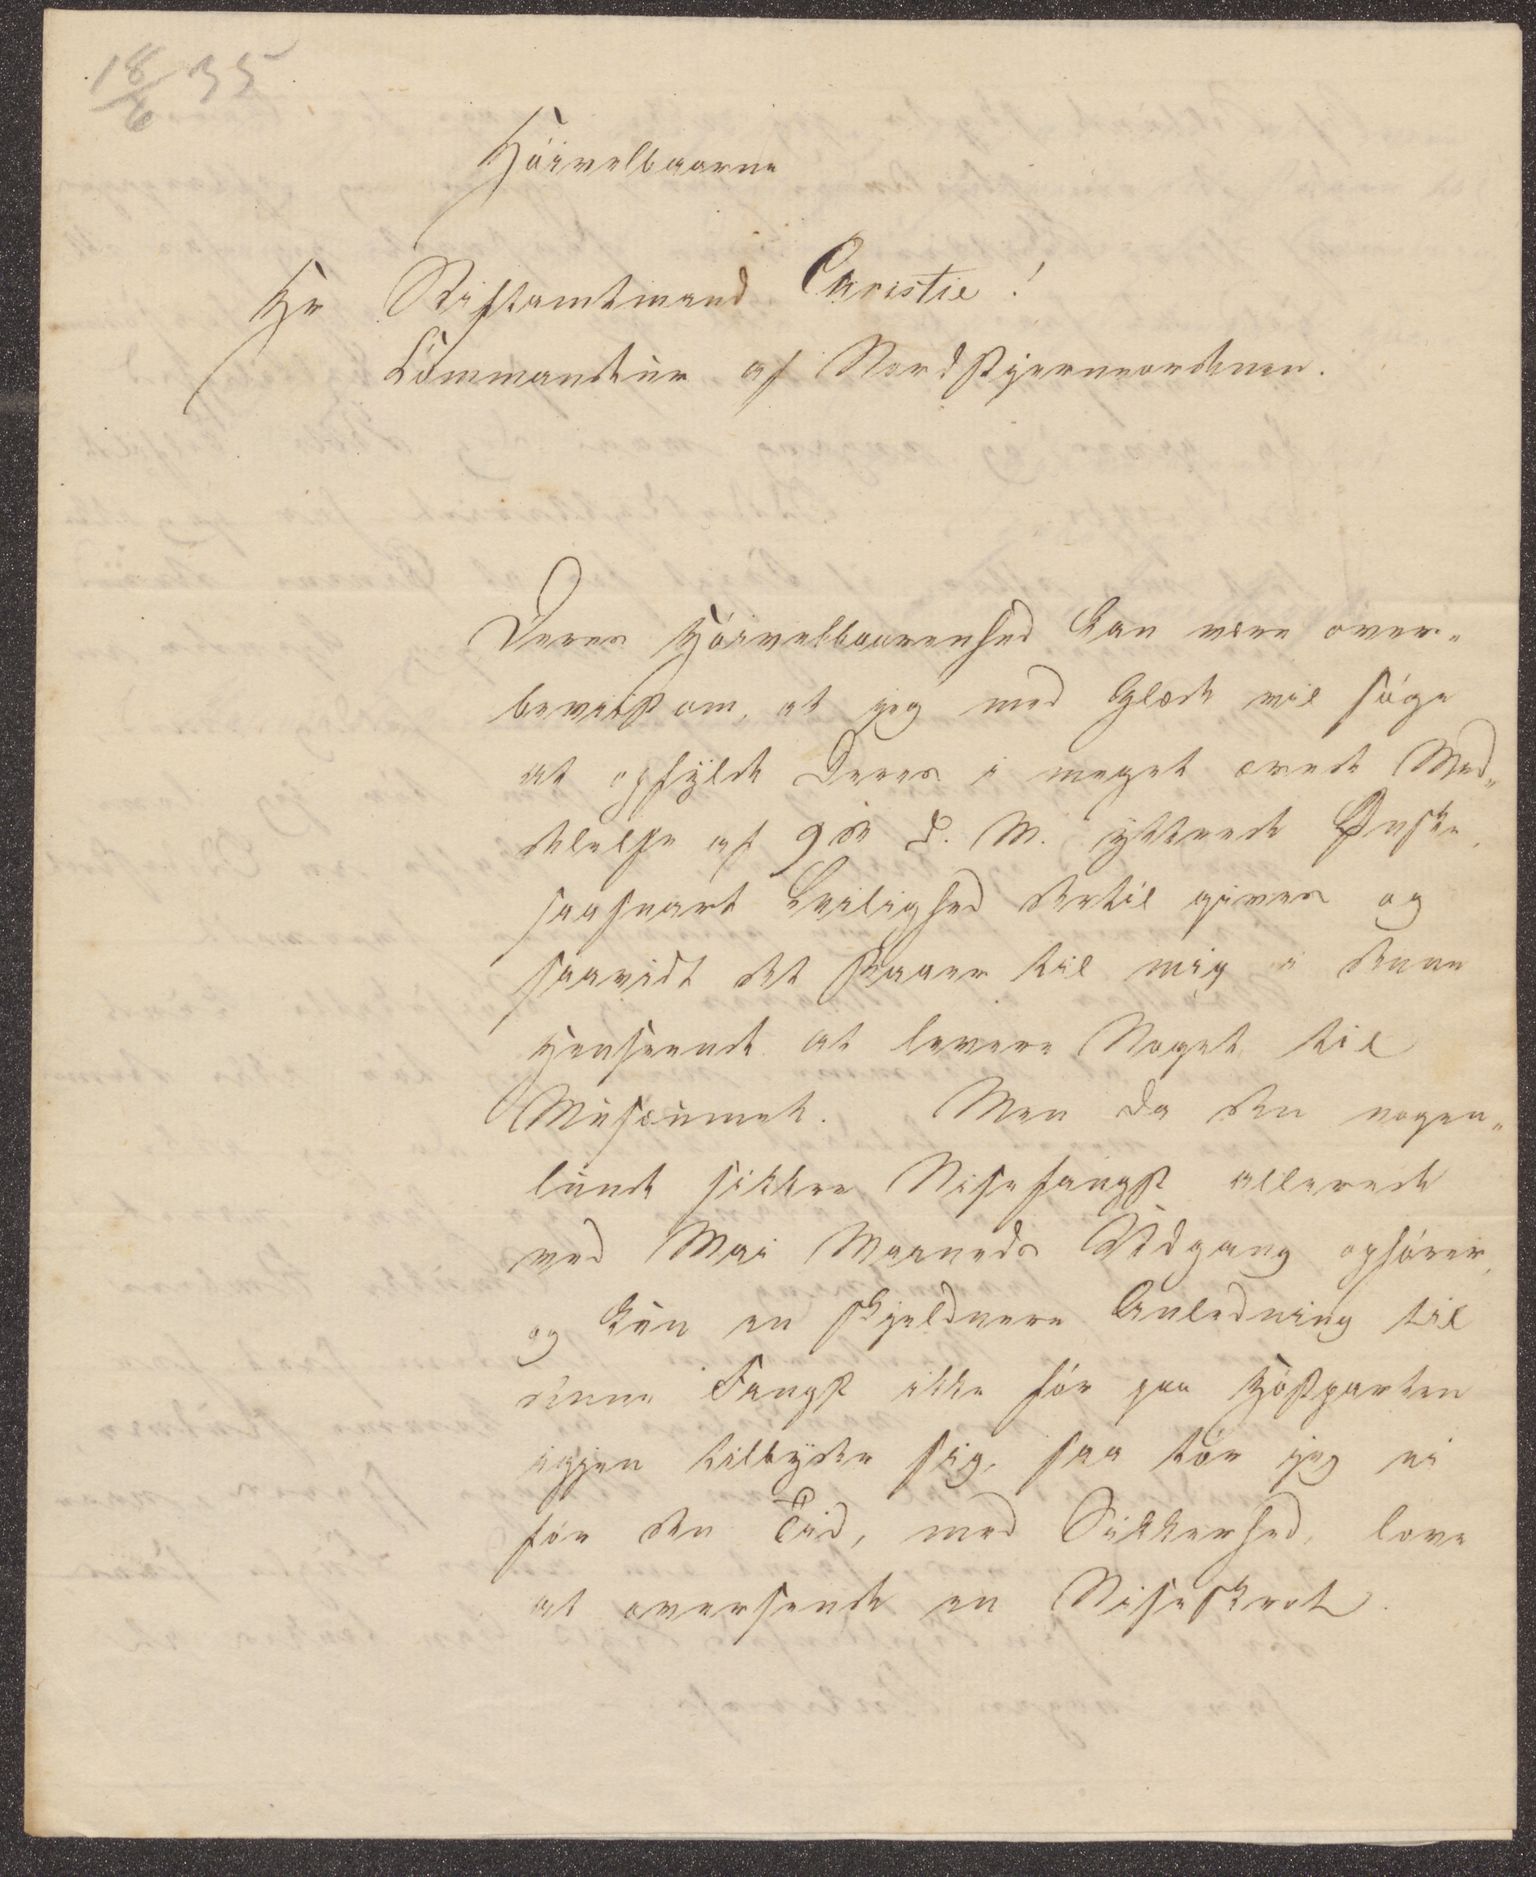 18/6 35
Höivelbaarne
Hr Stiftamtmand Christie!
Commandeur af Nordstjerneordenen.
Deres Höivelbaarenhed kan være över-
bevist om, at jeg med Glæde vil söge
at opfylde Deres i meget ærede Med-
delelse af 9de d. M. yttrede Ønske,
saasnart Leilighed dertil gives og
saavidt det staaer til mig i denne
Henseende at levere Noget til
Musæumet. Men da den nogen-
lunde sikkre Nisefangst allerede
ved Mai Maaneds Udgang ophörer,
og kun en skjeldnere Anledning til
denne Fangst ikke för paa Höstparten
igjen tilbyder sig, saa tör jeg ei
för den Tid, med Sikkerhed, love
at oversende en Niseskrot.